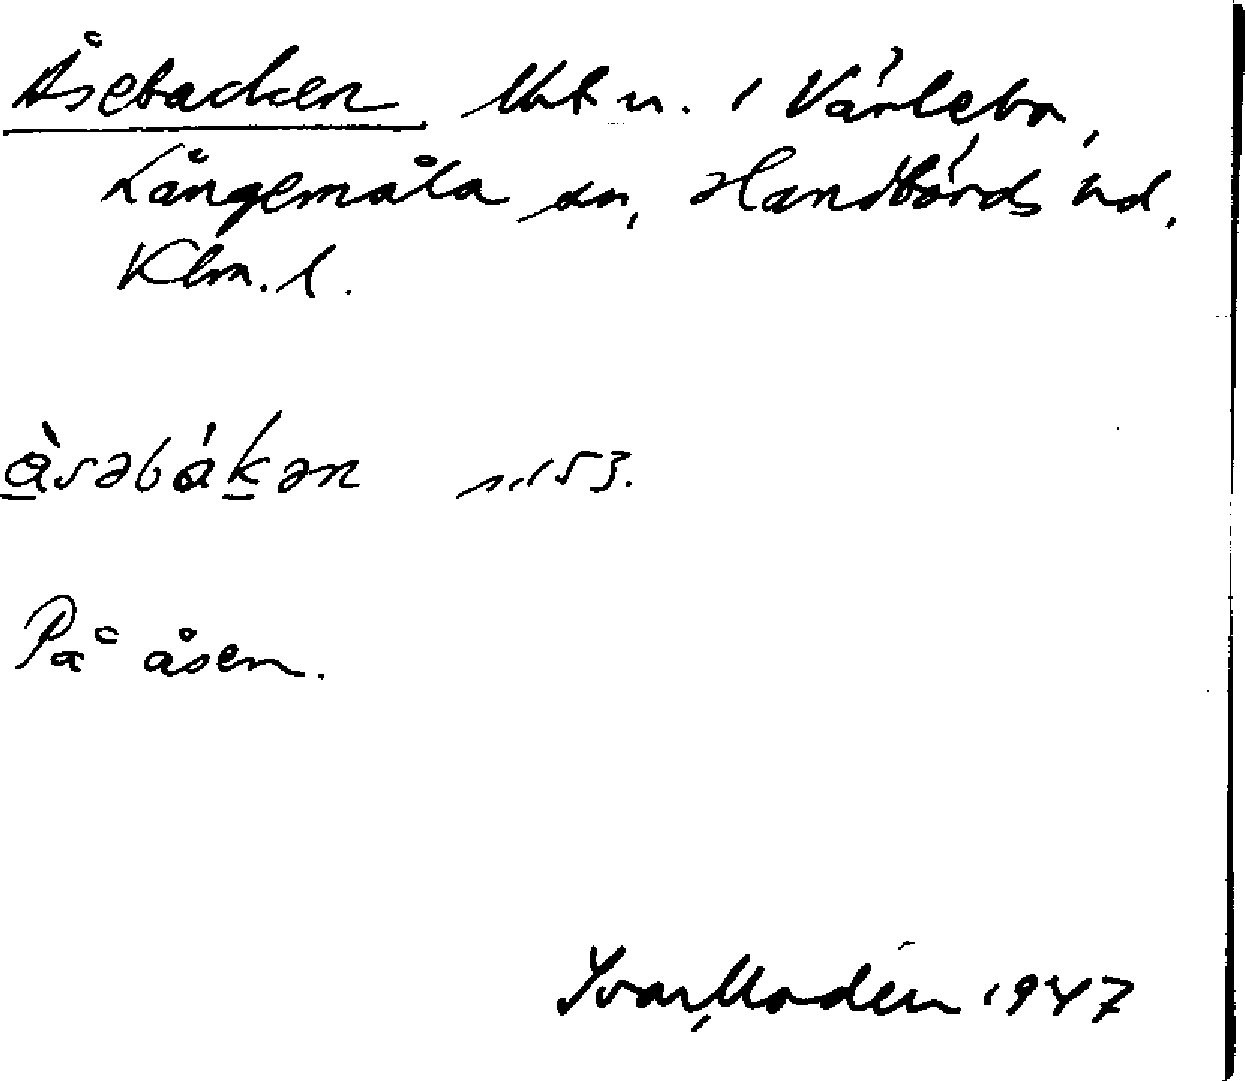 Åsebacken Utm. i Värlebo,
Långemåla sn, Handbörds hd.
Klm. l.
å̱̀səbáḵən s. 153.
På åsen.
Ivar Modéer 1947